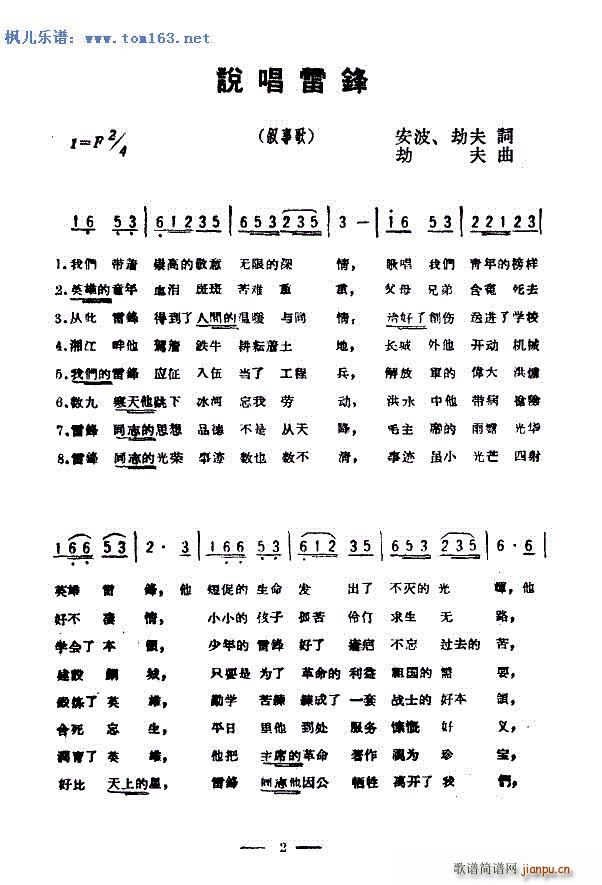 枫儿乐谱：www.tom163.net
說唱雷鋒
1=F 2/4
（叙事歌）
安波、劫夫詞
劫夫曲
1 6 5 3 | 6 1 2 3 5 | 6 5 3 2 3 5 | 3 — | 1 6 5 3 | 2 2 1 2 3 |
1.我們 带着 崇高的敬意 无限的深 情， 歌唱 我們 青年的榜样
2.英雄的童年 血泪 斑斑 苦难 重 重， 父母 兄弟 含寃 死去
3.从此 雷鋒 得到了人間的温暖 与同 情， 治好了創伤 送进了学校
4.湘江 畔他 駕着 鉄牛 耕耘着土 地， 长城 外他 开动 机械
5.我們的雷鋒 应征 入伍 当了 工程 兵， 解放 軍的 偉大 洪爐
6.数九 寒天他跳下 冰河 忘我 劳 动， 洪水 中他 带病 搶險
7.雷鋒 同志的思想 品德 不是 从天 降， 毛主 席的 雨露 光华
8.雷鋒 同志的光荣 事迹 数也 数不 清， 事迹 虽小 光芒 四射
1 6 6 5 3 | 2 · 3 | 1 6 6 5 3 | 6 1 2 3 5 | 6 5 3 2 3 5 | 6 · 6 |
英雄 雷 鋒，他 短促的 生命 发 出了 不灭的 光 輝，他
好不 凄 情， 小小的 孩子 孤苦 伶仃 求生 无 路，
学会了 本 領， 少年的 雷鋒 好了 瘡疤 不忘 过去的 苦，
建設 鋼 城， 只要是 为了 革命的 利益 祖国的 需 要，
鍛炼了 英 雄， 勤学 苦練 練成了 一套 战士的 好本 領，
舍死 忘 生， 平日 里他 到处 服务 慷慨 好 义，
滴育了 英 雄， 他把 主席的革命 著作 視为 珍 宝，
好比 天上的星， 雷鋒 同志他因公 牺牲 离开了 我 們，
2
歌谱简谱网
jianpu.cn